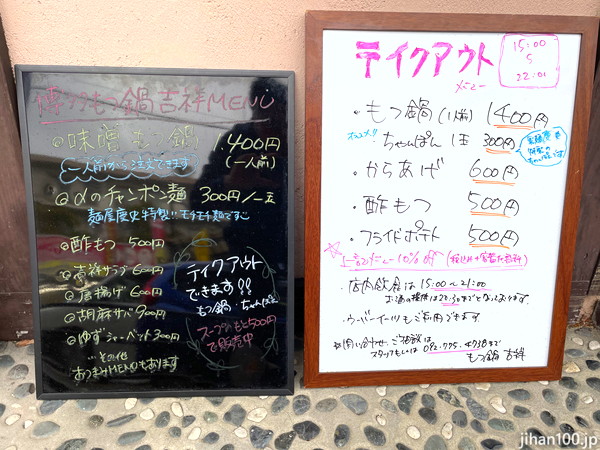 博多もつ鍋 吉祥 MENU
◎味噌もつ鍋 1,400円
(一人前)
一人前から注文できます
◎αのチャンポン麺 300円/一玉
麺屋慶史特製!! モチモチ麺です
◎酢もつ 500円
◎吉祥サラダ 600円
◎唐揚げ 600円
◎胡麻サバ 900円
◎ゆずシャーベット 300円
…その他
おつまみMENUもあります
テイクアウト
できます!!
もつ鍋・ちゃんぽん
スープのもと500円
で販売中
テイクアウト
メニュー
15:00
22:01
・もつ鍋(1人前) 1400円
オススメ!! ちゃんぽん 1玉 300円
・からあげ 600円
・酢もつ 500円
・フライドポテト 500円
・店内飲食は 15:00〜21:00
・ウーバーイーツもご利用できます
※問い合わせ、ご相談は
スタッフもしくは 092-775-4738まで
もつ鍋 吉祥
jihan100.jp